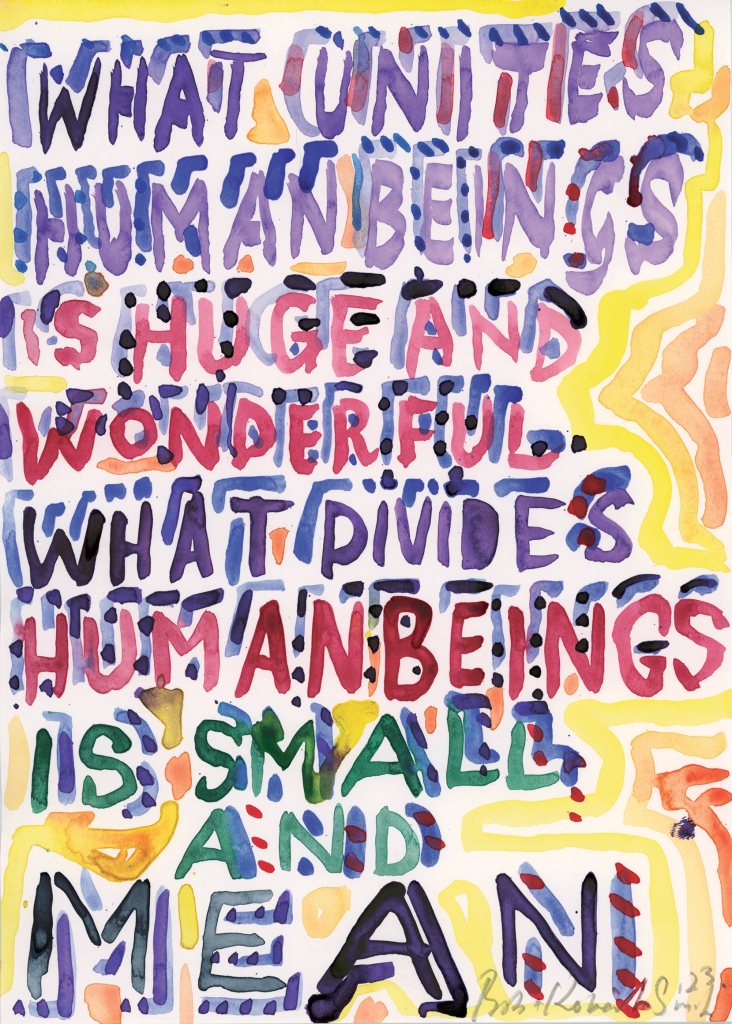 WHAT UNITIES
HUMAN BEINGS
IS HUGE AND
WONDERFUL
WHAT DIVIDES
HUMAN BEINGS
IS SMALL
AND
MEAN
Bob + Roberta Smith '23